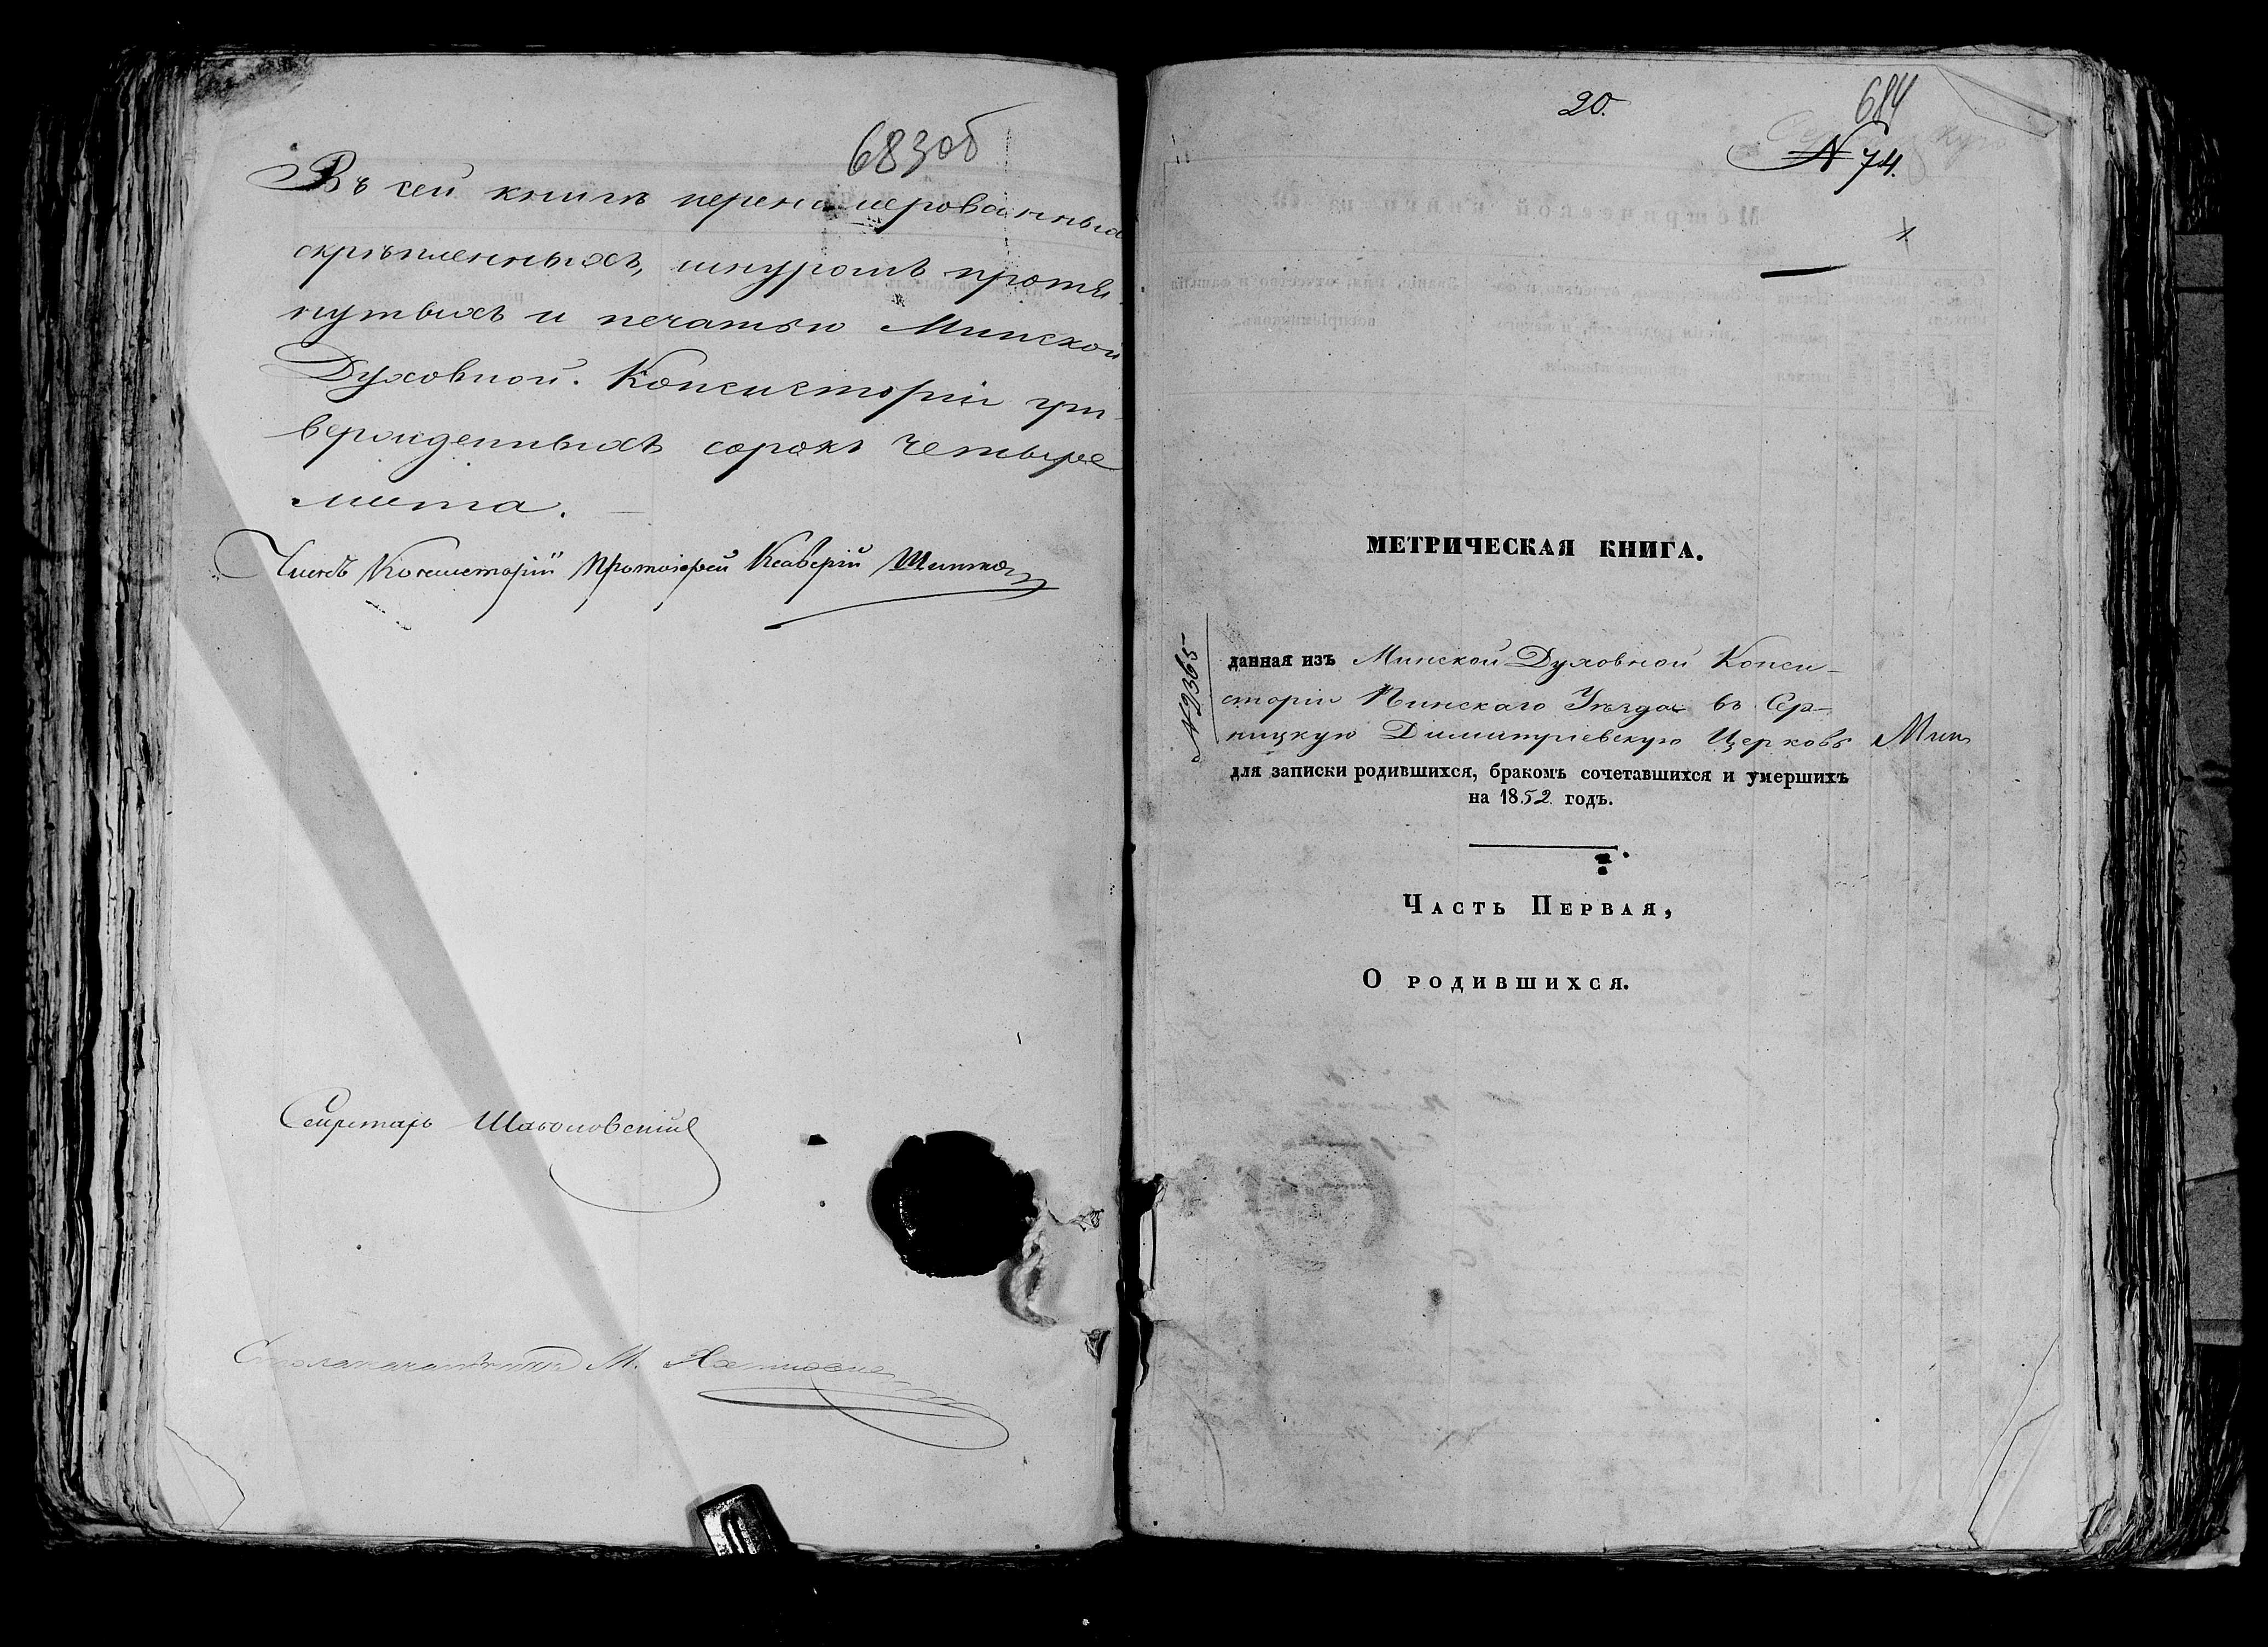 683об
Въ сей книгѣ перенумерованныхъ
скрѣпленныхъ, шнуромъ протя-
нутыхъ и печатью Минской
Духовной Консисторіи утъ-
вержденныхъ сорокъ четыре
листа.
Членъ Консисторіи Протоіерей Ксаверій
Секретарь
Столоначальникъ М.
20.
684
N 74.
МЕТРИЧЕСКАЯ КНИГА.
№ 2365
данная изъ Минской Духовной Конси-
сторіи Пинскаго Уѣзда въ Сер-
ницкую Димитріевскую Церковь
для записки родившихся, бракомъ сочетавшихся и умершихъ
на 1852 годъ.
Часть Первая,
О родившихся.